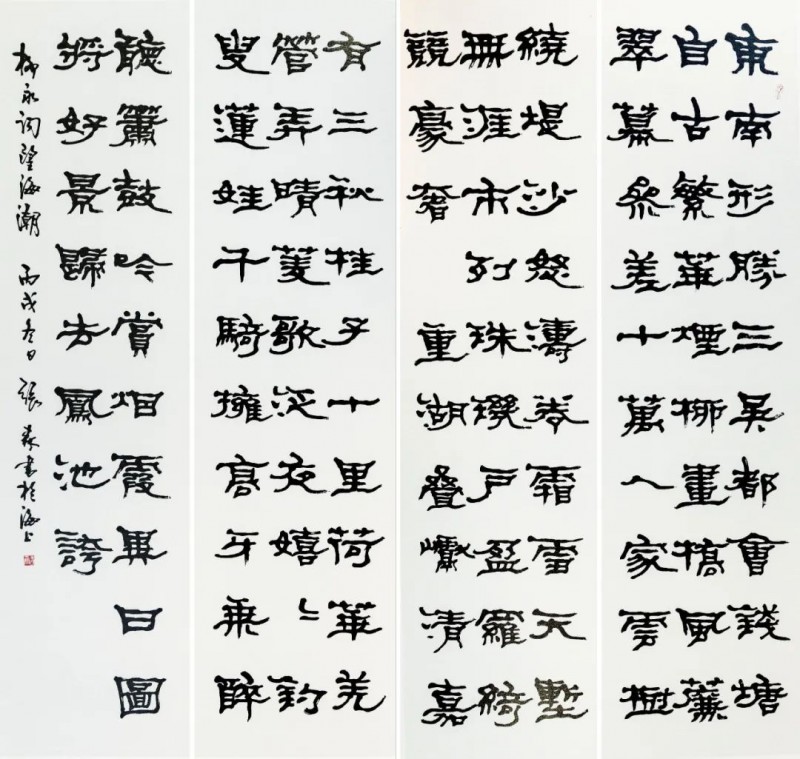 東南形勝三吴都會錢塘
自古繁華煙柳畫橋風簾
翠幕參差十萬人家雲樹
繞堤沙怒濤卷霜雪天塹
無涯市列珠璣戶盈羅綺
競豪奢 重湖疊巘清嘉
有三秋桂子十里荷華羌
管弄晴菱歌泛夜嬉〻釣
叟蓮娃千騎擁高牙乘醉
聽簫鼓吟賞烟霞異日圖
將好景歸去鳳池誇
柳永詞望海潮 丙戌冬日 張森書於海上